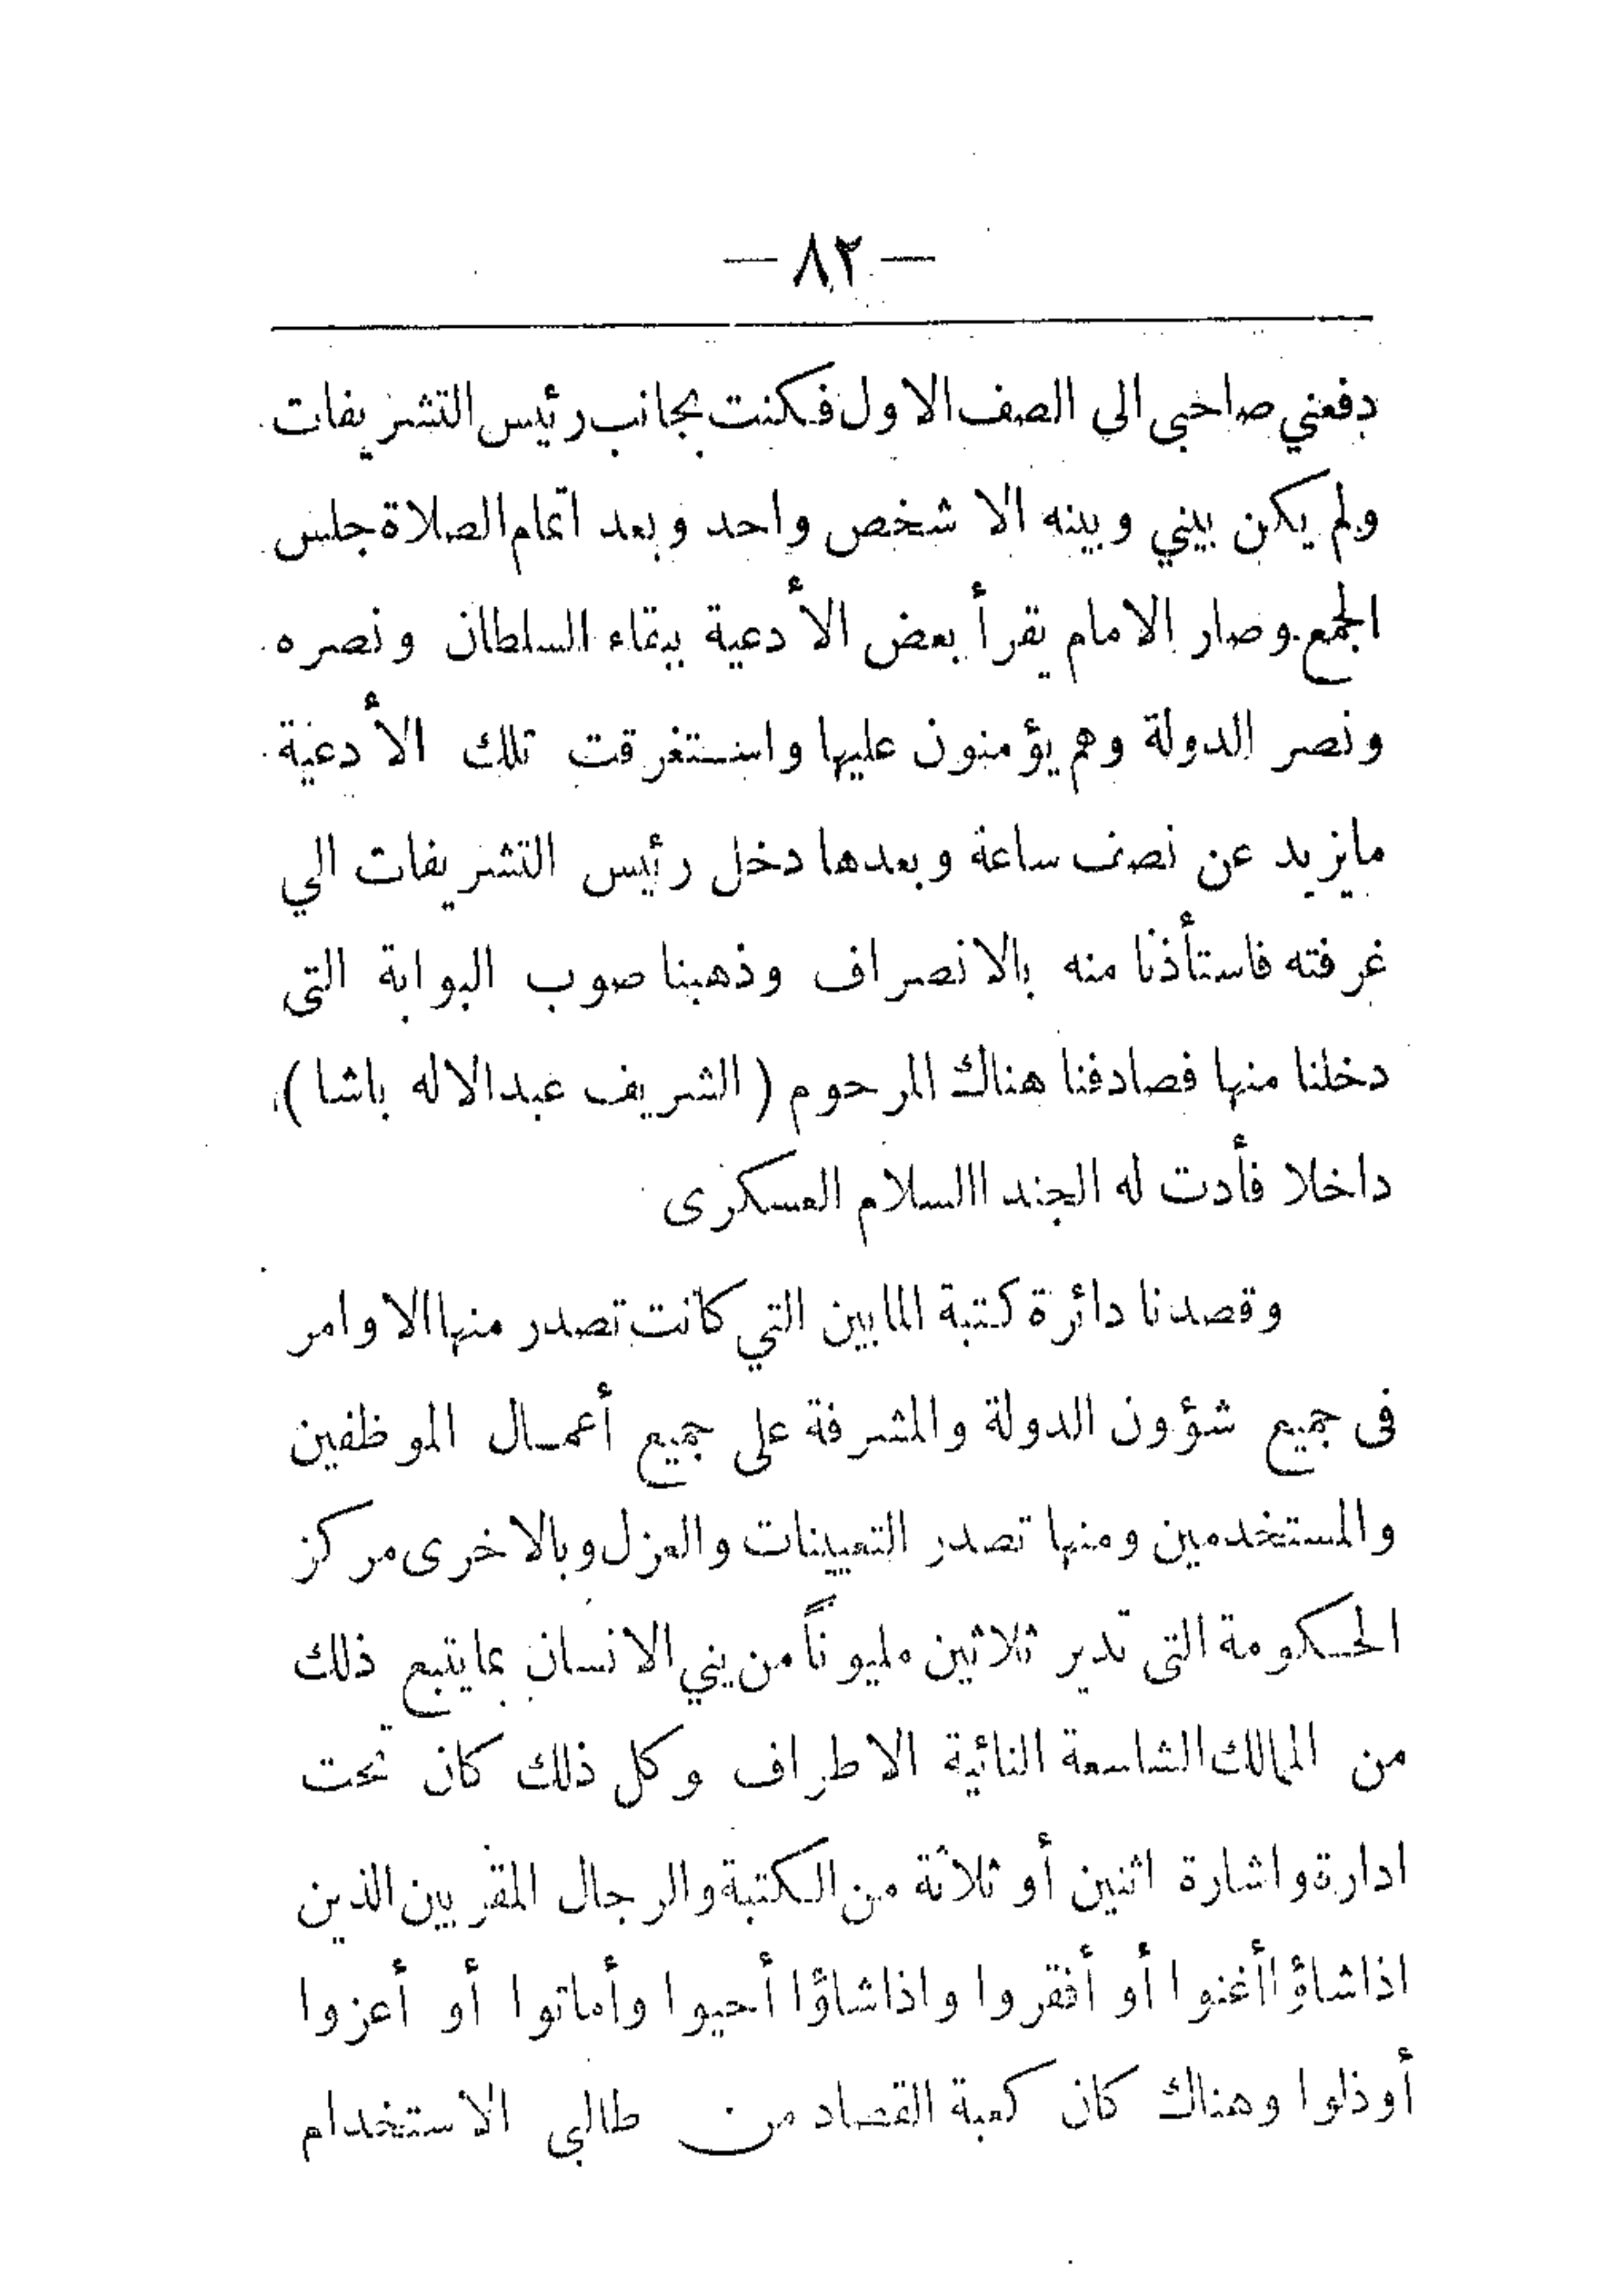 — ٨٢ —
دفعني صاحبى الى الصف الاول فكنت بجانب رئيس التشريفات
ولم يكن بيني وبينه الا شخص واحد وبعد اتمام الصلاة جلس
الجمع وصار الامام يقرأ بعض الأدعية ببقاء السلطان ونصره
ونصر الدولة وهم يؤمنون عليها واستغرقت تلك الأدعية
مايزيد عن نصف ساعة وبعدها دخل رئيس التشريفات الي
غرفته فاستأذنا منه بالانصراف وذهبنا صوب البوابة التى
دخلنا منها فصادفنا هناك المرحوم ( الشريف عبدالاله باشا )
داخلا فأدت له الجند االسلام العسكرى
وقصدنا دائرة كتبة المابين التي كانت تصدر منها الاوامر
فى جميع شؤون الدولة والمشرفة على جميع أعمال الموظفين
والمستخدمين ومنها تصدر التعيينات والعزل وبالاخرى مركز
الحكومة التى تدير ثلاثين مليوناً من بني الانسان بمايتبع ذلك
من الممالك الشاسعة النائية الاطراف وكل ذلك كان تحت
ادارة واشارة اثنين أو ثلاثة من الكتبة والرجال المقربين الذين
اذاشاؤا أغنوا أو أفقروا واذاشاؤا أحيوا وأماتوا أو أعزوا
أوذلوا وهناك كان كعبة القصاد من طالبى الاستخدام